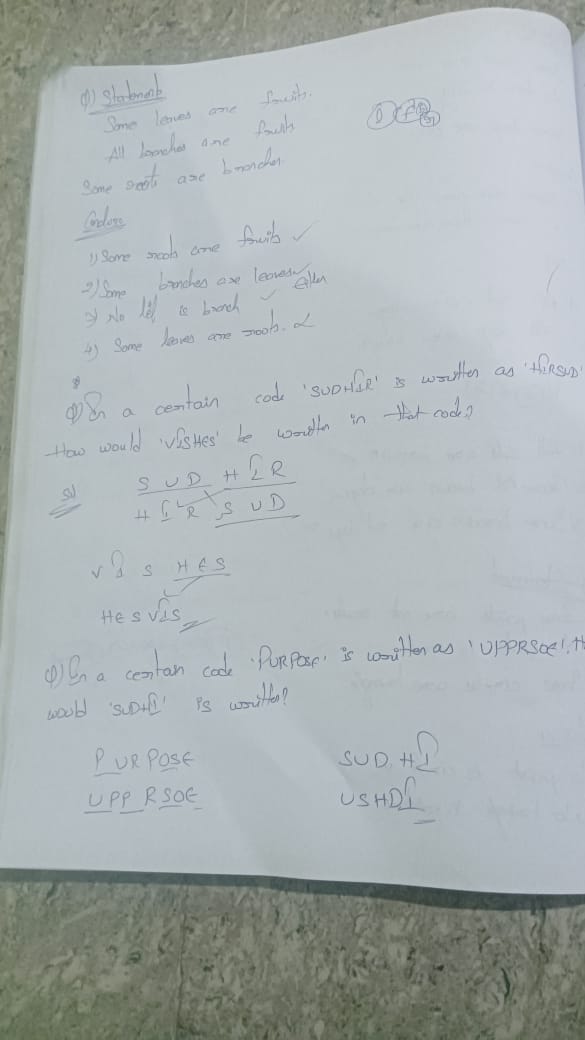 Q) Statements
Some leaves are fruits.
All branches are fruits
Some roots are branches.
1) Some roots are fruits ✓
2) Some branches are leaves
3) No is branch ✓
4) Some leaves are roots.
Q) In a certain code 'SUDHIR' is written as 'HIRSUD'
How would 'VISHES' be written in that code?
Sol
S U D H I R
H I R S U D
V I S H E S
HES VIS
Q) In a certain code 'PURPOSE' is written as 'UPPRSOE',
would 'SUDHI' is written?
PURPOSE SUDHI
UPPRSOE USHDI